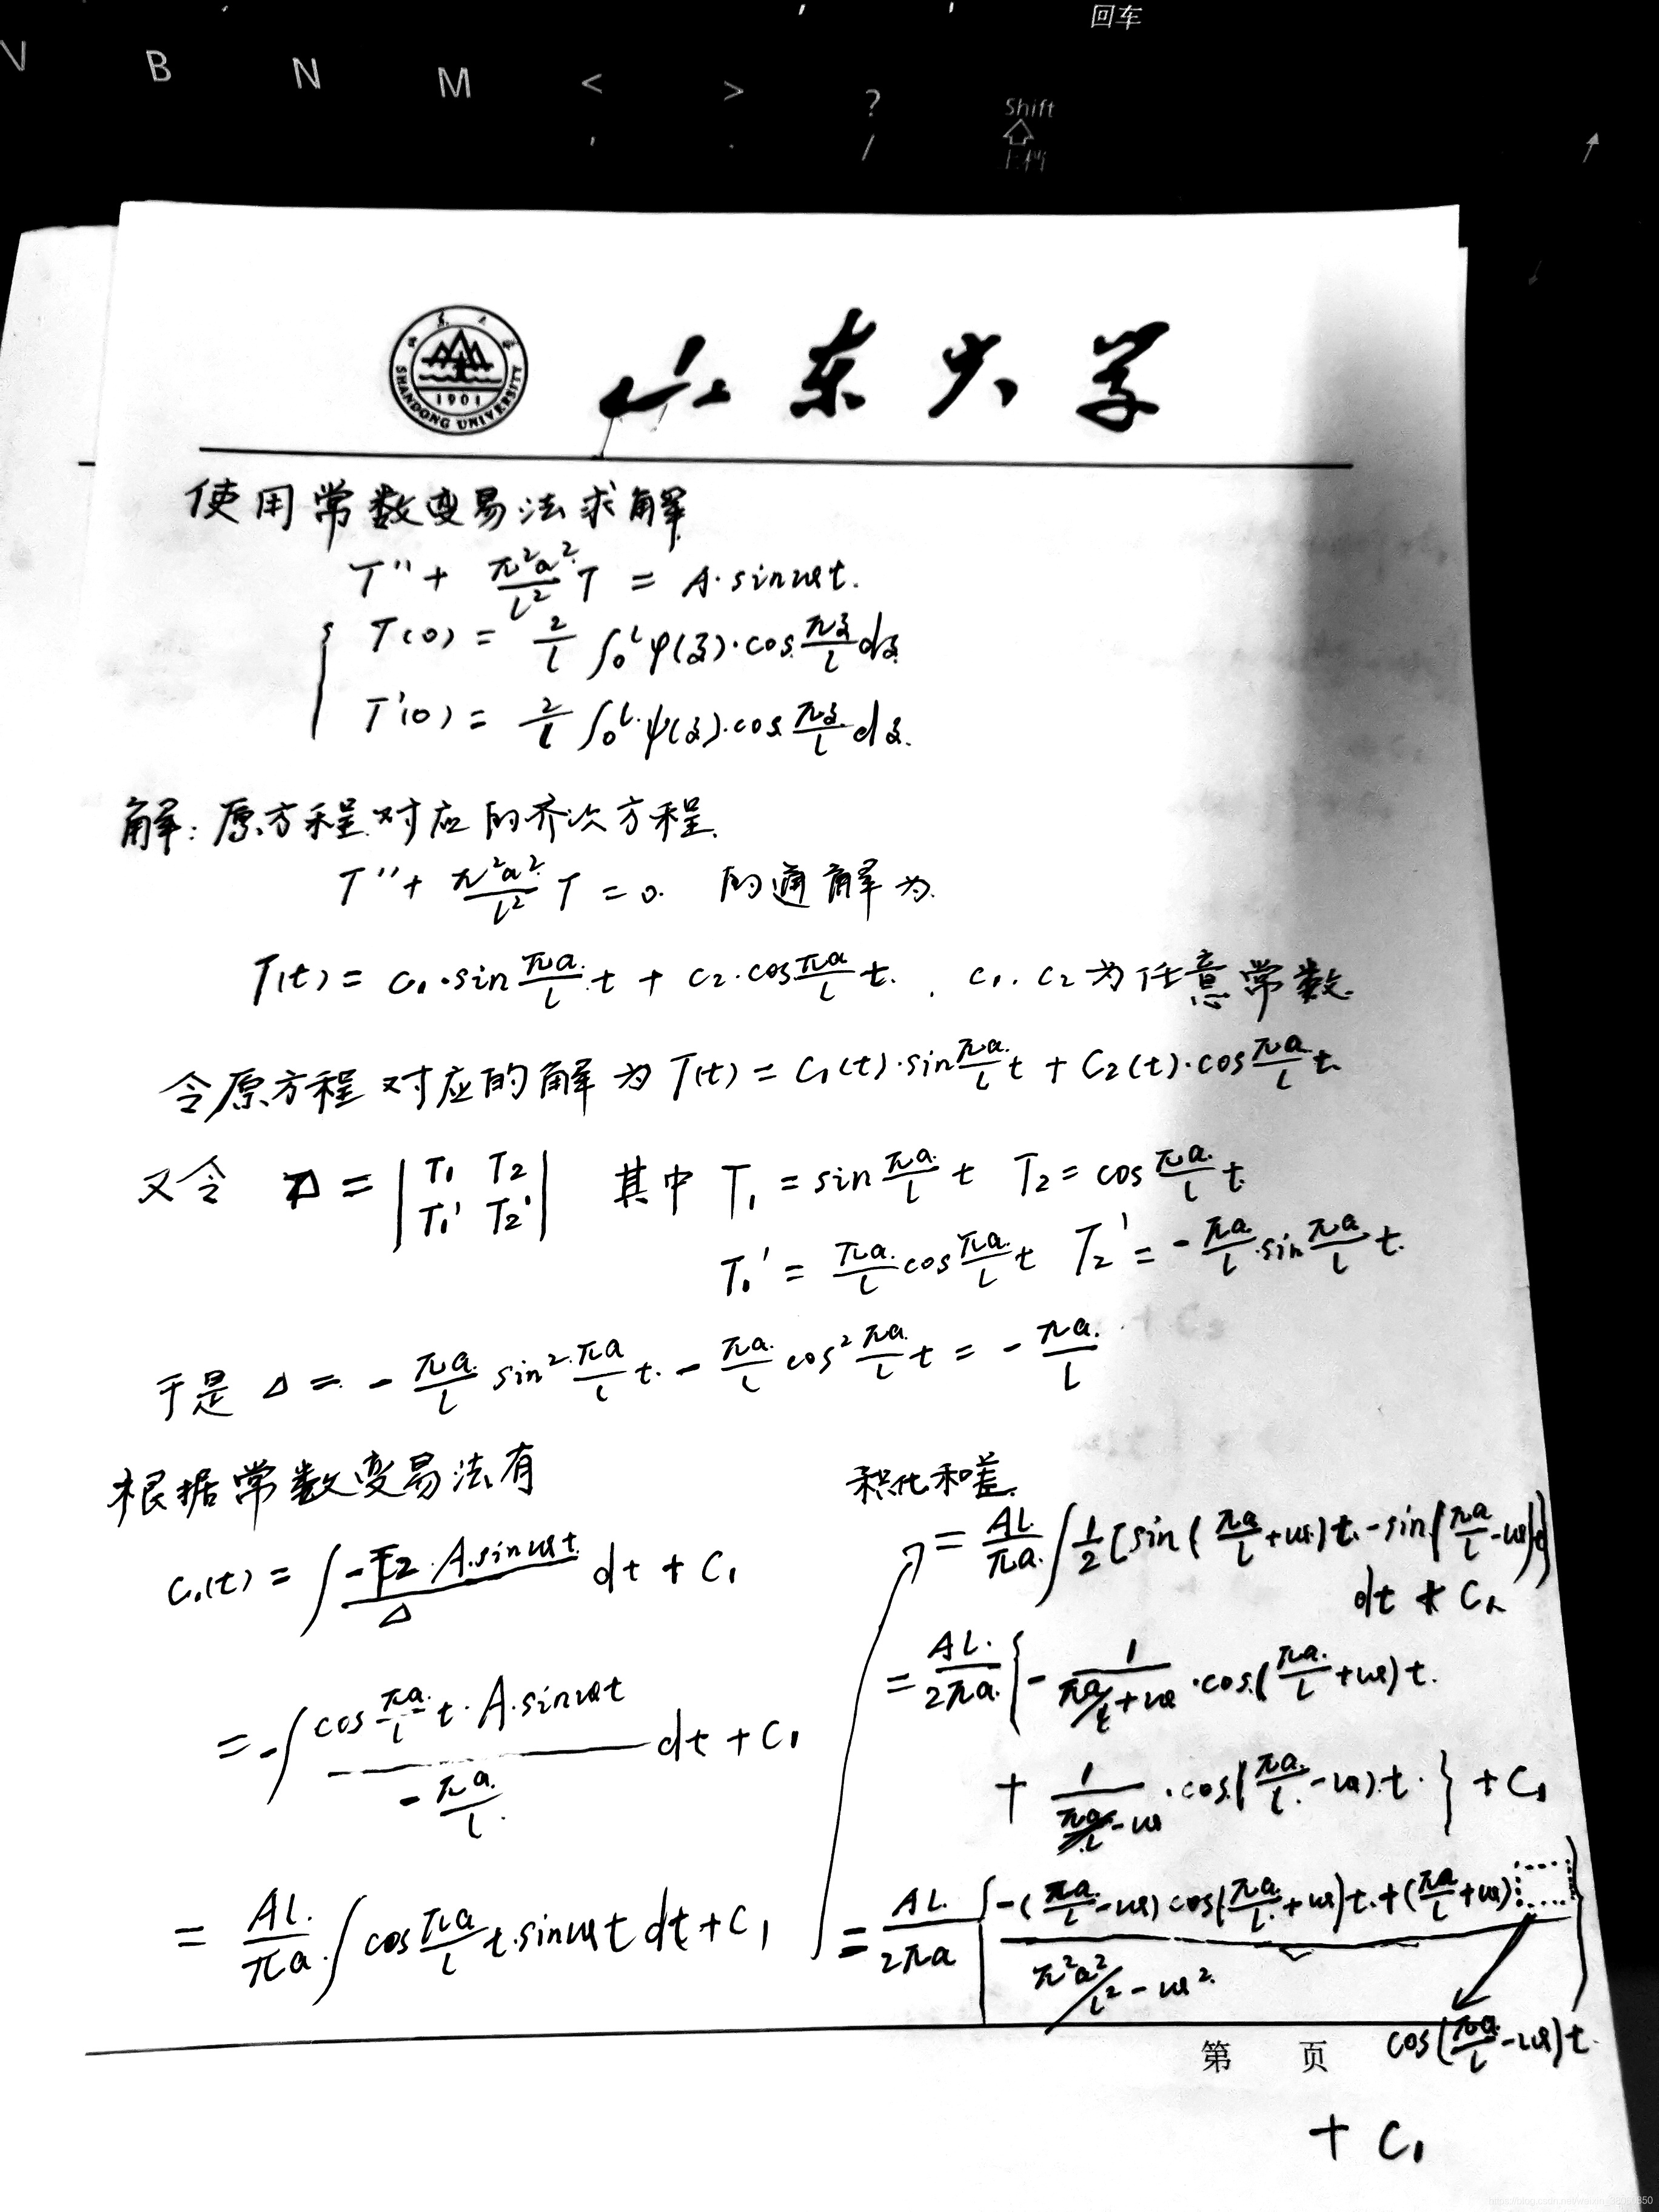 回车
V B N M < > ?
, . /
Shift
上档
SHANDONG UNIVERSITY
1901
山东大学
使用常数变易法求解
T'' + \frac{π²a²}{l²} T = A·sinωt.
T(0) = \frac{2}{l} ∫₀^l φ(ξ)·cos\frac{πξ}{l} dξ
T'(0) = \frac{2}{l} ∫₀^l ψ(ξ)·cos\frac{πξ}{l} dξ.
解: 原方程对应的齐次方程.
T'' + \frac{π²a²}{l²} T = 0. 的通解为
T(t) = C₁·sin\frac{πa}{l}t + C₂·cos\frac{πa}{l}t. , C₁. C₂为任意常数.
令原方程对应的解为 T(t) = C₁(t)·sin\frac{πa}{l}t + C₂(t)·cos\frac{πa}{l}t.
又令 Δ = |T₁ T₂; T₁' T₂'| 其中 T₁ = sin\frac{πa}{l}t T₂ = cos\frac{πa}{l}t.
T₁' = \frac{πa}{l}cos\frac{πa}{l}t T₂' = -\frac{πa}{l}·sin\frac{πa}{l}t.
于是 Δ = -\frac{πa}{l} sin²\frac{πa}{l}t - \frac{πa}{l} cos²\frac{πa}{l}t = -\frac{πa}{l}
根据常数变易法有
C₁(t) = ∫\frac{-T₂·A·sinωt}{Δ} dt + C₁
= -∫\frac{cos\frac{πa}{l}t·A·sinωt}{-\frac{πa}{l}} dt + C₁
= \frac{Al}{πa}∫cos\frac{πa}{l}t·sinωt dt + C₁
积化和差.
= \frac{Al}{πa}∫\frac{1}{2}[sin(\frac{πa}{l}+ω)t - sin(\frac{πa}{l}-ω)t]
dt + C₁
= \frac{Al}{2πa}{-\frac{1}{πa/l+ω}·cos(\frac{πa}{l}+ω)t.
+ \frac{1}{\frac{πa}{l}-ω}·cos(\frac{πa}{l}-ω)t.} + C₁
= \frac{Al}{2πa}{\frac{-(\frac{πa}{l}-ω)cos(\frac{πa}{l}+ω)t + (\frac{πa}{l}+ω)}{π²a²/l² - ω²}}
cos(\frac{πa}{l}-ω)t.
第 页
+ C₁